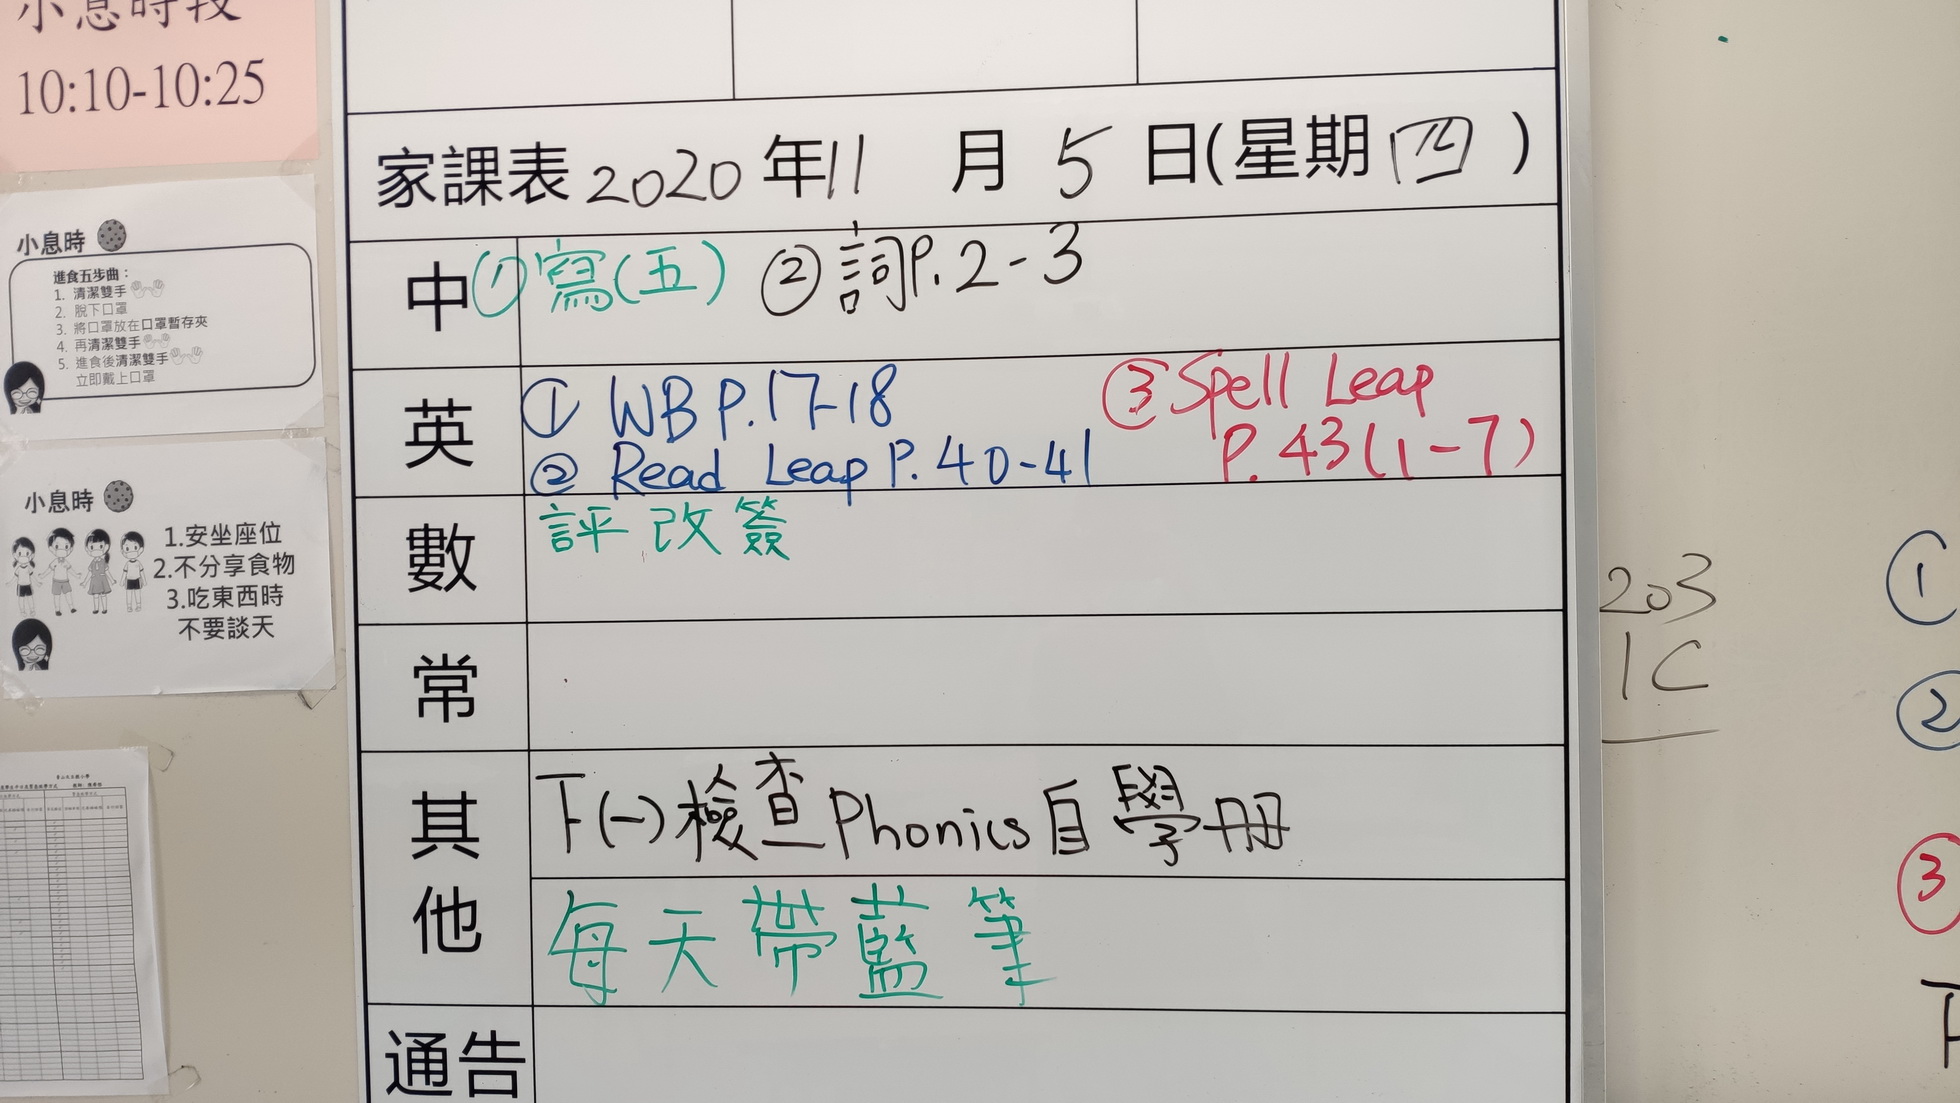 小息時段
10:10-10:25
小息時
進食五步曲：
1. 清潔雙手
2. 脫下口罩
3. 將口罩放在口罩暫存夾
4. 再清潔雙手
5. 進食後清潔雙手
立即戴上口罩
小息時
1.安坐座位
2.不分享食物
3.吃東西時
不要談天
家課表 2020 年 11 月 5 日(星期 四 )
中 ① 寫(五) ② 詞P.2-3
英 ① WB P.17-18 ③ Spell Leap
② Read Leap P.40-41 P.43(1-7)
數 評改簽
常
其他 下(一)檢查Phonics自學冊
每天帶藍筆
通告
203
1C
①
②
③
下